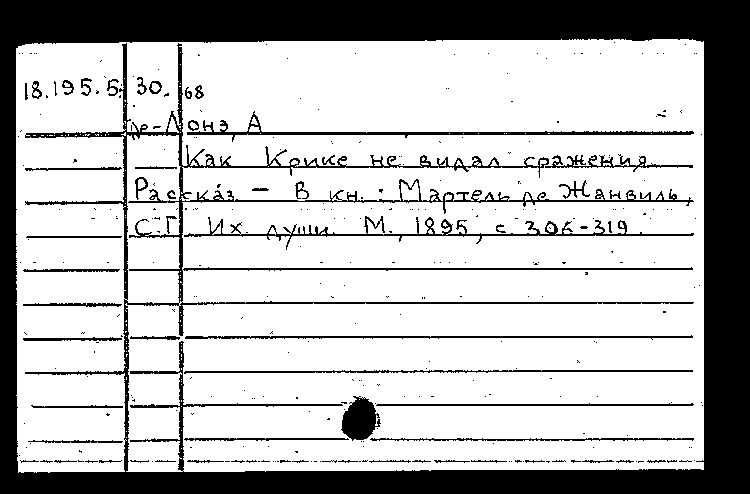 18.195.5. 30. 68
де-Лонэ, А
Как Крике не видал сражения
Рассказ – В кн.: Мартель де Жанвиль,
С.Г. Их души. М., 1895, с. 305-319.